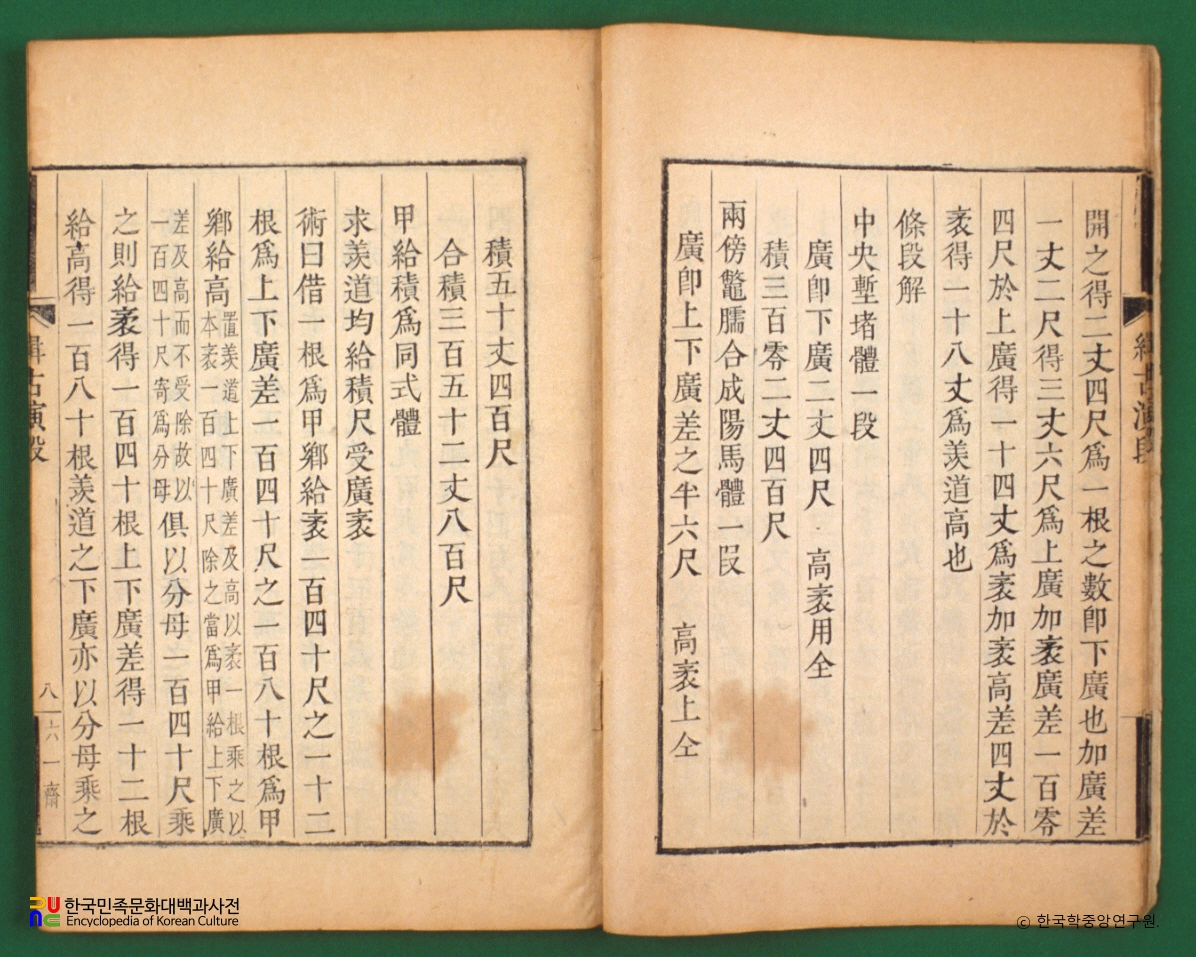 緝古演段
開之得二丈四尺爲一根之數卽下廣也加廣差
一丈二尺得三丈六尺爲上廣加袤廣差一百零
四尺於上廣得一十四丈爲袤加袤高差四丈於
袤得一十八丈爲羨道高也
條段解
中央塹堵體一段
廣卽下廣二丈四尺 高袤用仝
積三百零二丈四百尺
兩傍鼈臑合成陽馬體一段
廣卽上下廣差之半六尺 高袤上仝
積五十丈四百尺
合積三百五十二丈八百尺
甲給積爲同式體
求羨道均給積尺受廣袤
術曰借一根爲甲鄕給袤一百四十尺之一十二
根爲上下廣差一百四十尺之一百八十根爲甲
鄕給高
置羨道上下廣差及高以袤一根乘之以
本袤一百四十尺除之當爲甲給上下廣
差及高而不受除故以
一百四十尺寄爲分母
俱以分母一百四十尺乘
之則給袤得一百四十根上下廣差得一十二根
給高得一百八十根羨道之下廣亦以分母乘之
緝古演段
八
六一齋
한국민족문화대백과사전
Encyclopedia of Korean Culture
© 한국학중앙연구원.